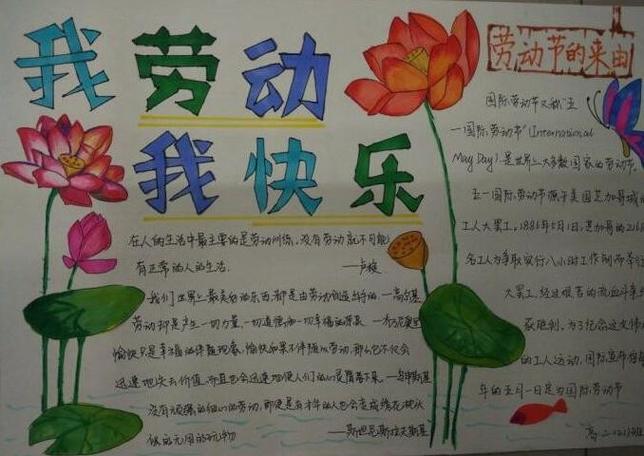 我劳动
我快乐
在人的生活中最主要的是劳动训练,没有劳动就不可能
有正常的人的生活.
——卢梭
我们世界上最美好的东西,都是由劳动创造出来的.——高尔基
劳动却是产生一切力量、一切道德和一切幸福的源泉
愉快只是幸福的伴随现象,愉快如果不伴随以劳动,那么它不仅会
迅速地失去价值,而且也会迅速地使人们的心灵堕落下来.
没有顽强的细心的劳动,即使是有才华的人也会变成绣花枕头
似的无用的玩物
——斯坦尼斯拉夫斯基
劳动节的来由
国际劳动节又称"五
一国际劳动节"(International
May Day),是世界上大多数国家的劳动节.
五一国际劳动节源于美国芝加哥城的
工人大罢工,1886年5月1日,芝加哥的216
名工人为争取实行八小时工作制而举行
大罢工,经过艰苦的流血斗争
获胜利,为了纪念这次伟
的工人运动,国际
年的五月一日定为国际劳动节
高二